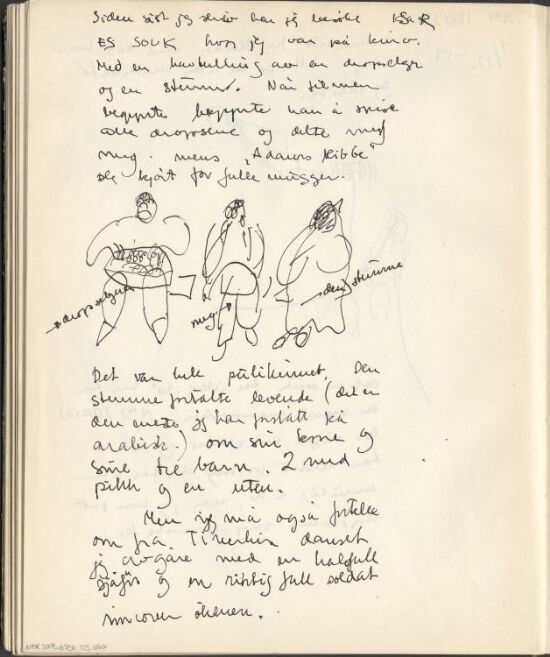 Siden sist jeg skrev har jeg besøkt KSAR
ES SOUK hvor jeg var på kino.
Med en havtulling av en dropselger
og en stumme. Når filmen
begynte begynte han å spise
alle dropsene og delte med
meg. mens "Adams Ribbe"
ble kjørt for fulle mugger.
dropselgeren
meg
den stumme
Det var hele publikummet. Den
stumme fortalte levende (det er
den eneste jeg har forstått på
arabisk.) om sin kone og
sine tre barn. 2 med
pikk og en uten.
Men jeg må også fortelle
om fra Tinerhir danset
jeg avgåre med en halvfull
sjåfør og en riktig full soldat
ørkenen.